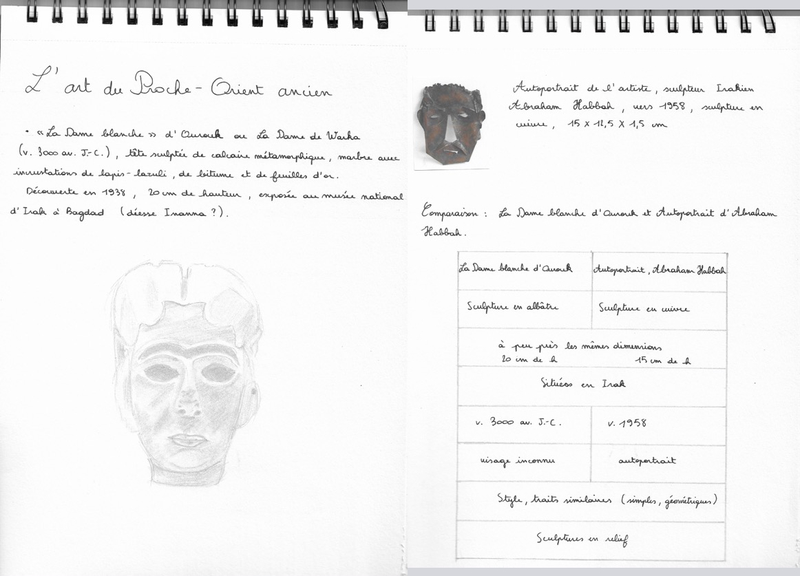 L'art du Proche-Orient ancien
• «La Dame blanche» d'Ourouk ou La Dame de Warka
(v. 3000 av. J.-C.), tête sculptée de calcaire métamorphique, marbre avec
incrustations de lapis-lazuli, de bitume et de feuilles d'or.
Découverte en 1938, 20 cm de hauteur, exposée au musée national
d'Irak à Bagdad (déesse Inanna ?).
Autoportrait de l'artiste, sculpteur Irakien
Abraham Habbah, vers 1958, sculpture en
cuivre, 15 x 12,5 x 1,5 cm
Comparaison : La Dame blanche d'Ourouk et Autoportrait d'Abraham
Habbah.
La Dame blanche d'Ourouk Autoportrait, Abraham Habbah
Sculpture en albâtre Sculpture en cuivre
à peu près les mêmes dimensions
20 cm de h 15 cm de h
Situées en Irak
v. 3000 av. J.-C. v. 1958
visage inconnu autoportrait
Style, traits similaires (simples, géométriques)
Sculptures en relief